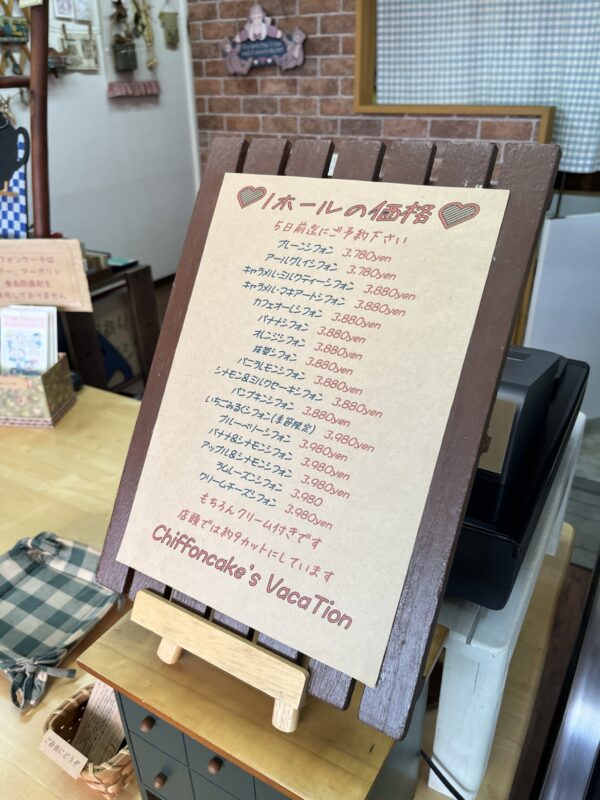 1ホールの価格
5日前迄にご予約下さい
プレーンシフォン 3.780yen
アールグレイシフォン 3.780yen
キャラメル・ミルクティーシフォン 3.880yen
キャラメル・マキアートシフォン 3.880yen
カフェオーレシフォン 3.880yen
バナナシフォン 3.880yen
オレンジシフォン 3.880yen
抹茶シフォン 3.880yen
バニラレモンシフォン 3.880yen
シナモン&ミルクセーキシフォン 3.880yen
パンプキンシフォン 3.880yen
いちごみるくシフォン(季節限定) 3.980yen
ブルーベリーシフォン 3.980yen
バナナ&シナモンシフォン 3.980yen
アップル&シナモンシフォン 3.980yen
ラムレーズンシフォン 3.980
クリームチーズシフォン 3.980yen
もちろんクリーム付きです
店頭では約9カットにしています
Chiffoncake's VacaTion
フォンケーキは
ー、マーガリン
食品防腐剤を
用しておりません
ご自由にどうぞ